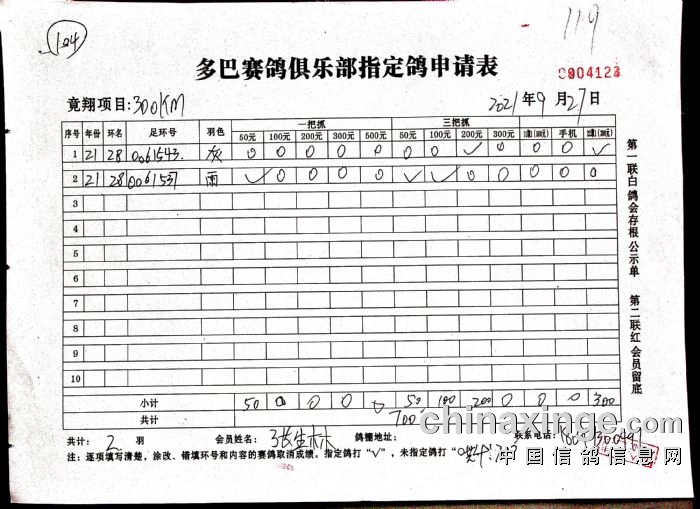 104
119
多巴赛鸽俱乐部指定鸽申请表
0904123
竞翔项目:300KM 2021年9月27日
序号 年份 环名 足环号 羽色 一把抓 三把抓
50元 100元 200元 300元 500元 50元 100元 200元 300元 手机
1 21 28 0061543. 灰 0 0 0 0 0 0 0 √ 0 0 0 √
2 21 28 0061537 雨 √ 0 0 0 0 √ √ 0 0 0 0 0
3
4
5
6
7
8
9
10
小计 50 0 0 0 0 50 100 200 0 0 0 300
共计 700
共计: 2 羽 会员姓名: 张生林 鸽棚地址: 联系电话:
注:逐项填写清楚,涂改、错填环号和内容的赛鸽取消成绩。指定鸽打"√",未指定鸽打"0
第一联白鸽会存根公示单 第二联红会员留底
chinaxinge.com
中国信鸽信息网